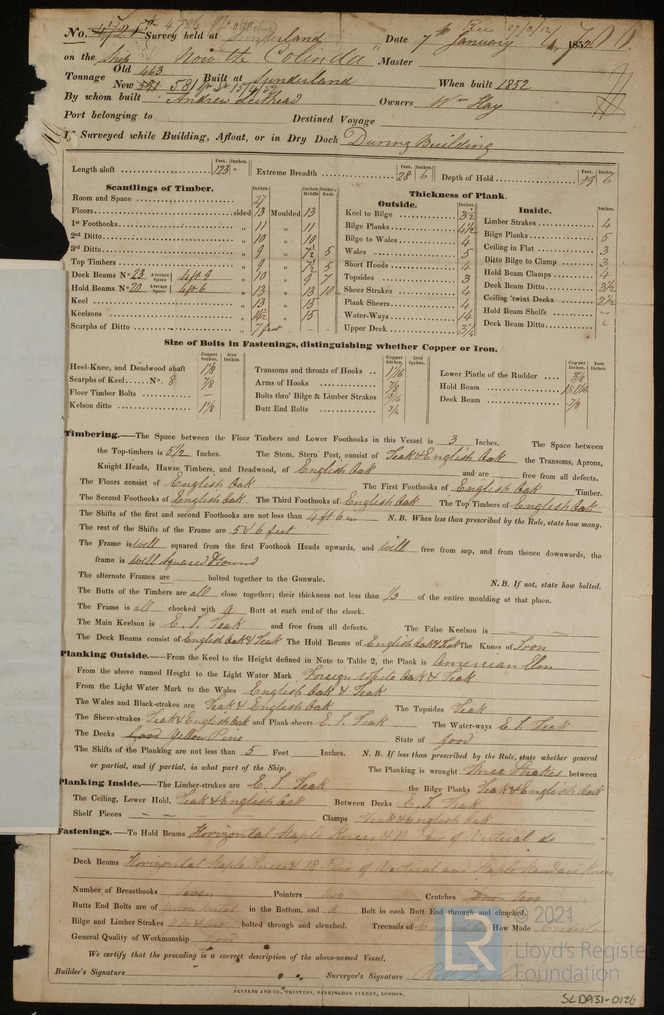 No. Survey held at Sunderland Date 7th January 1852
on the Ship Now the Colinda Master
Tonnage Old 463
New 581 Built at Sunderland When built 1852
By whom built Andrew Leithead Owners Wm Hay
Port belonging to Destined Voyage
If Surveyed while Building, Afloat, or in Dry Dock During Building
Length aloft 123 - Extreme Breadth 28 6 Depth of Hold 19 6
Scantlings of Timber.
Room and Space 27
Floors sided 13 Moulded 13
1st Foothooks " 11 " 11
2nd Ditto " 10 " 10
3rd Ditto 7½ 5
Top Timbers " 9 " 7½ 5
Deck Beams No 23 Average Space 4 ft 9 " 10 " 9 7
Hold Beams No 20 Average Space 4 ft 6 " 13 " 13 10
Keel " 13 " 15
Keelsons " 14½ " 15
Scarphs of Ditto 7 feet
Thickness of Plank.
Outside.
Keel to Bilge 3½
Bilge Planks 4½
Bilge to Wales 4
Wales 5
Short Hoods 4
Topsides 3
Sheer Strakes 4
Plank Sheers 4
Water-Ways 14
Upper Deck 3½
Inside.
Limber Strakes 4
Bilge Planks 5
Ceiling in Flat 3
Ditto Bilge to Clamp 3
Hold Beam Clamps 4
Deck Beam Ditto 3½
Ceiling 'twixt Decks 2½
Hold Beam Shelfs -
Deck Beam Ditto -
Size of Bolts in Fastenings, distinguishing whether Copper or Iron.
Heel-Knee, and Deadwood abaft 1⅛
Scarphs of Keel No. 8 ⅞
Floor Timber Bolts -
Kelson ditto 1⅛
Transoms and throats of Hooks 1 1/16
Arms of Hooks ⅞
Bolts thro' Bilge & Limber Strakes
Butt End Bolts ¾
Lower Pintle of the Rudder
Hold Beam
Deck Beam ⅞
Timbering.—The Space between the Floor Timbers and Lower Foothooks in this Vessel is 3 Inches. The Space between
the Top-timbers is 5½ Inches. The Stem, Stern Post, consist of Teak & English Oak the Transoms, Aprons,
Knight Heads, Hawse Timbers, and Deadwood, of English Oak and are free from all defects.
The Floors consist of English Oak The First Foothooks of English Oak Timber.
The Second Foothooks of English Oak The Third Foothooks of English Oak The Top Timbers of English Oak
The Shifts of the first and second Foothooks are not less than 4 ft 6 in N.B. When less than prescribed by the Rule, state how many.
The rest of the Shifts of the Frame are 5 & 6 feet
The Frame is well squared from the first Foothook Heads upwards, and well free from sap, and from thence downwards, the
frame is well squared & sound
The alternate Frames are bolted together to the Gunwale. N.B. If not, state how bolted.
The Butts of the Timbers are all close together; their thickness not less than ⅓ of the entire moulding at that place.
The Frame is all chocked with a Butt at each end of the chock.
The Main Keelson is E. I. Teak and free from all defects. The False Keelson is
The Deck Beams consist of English Oak & Teak The Hold Beams of English Oak & Teak The Knees of Iron
Planking Outside.—From the Keel to the Height defined in Note to Table 2, the Plank is American Elm
From the above named Height to the Light Water Mark Foreign White Oak & Teak
From the Light Water Mark to the Wales English Oak & Teak
The Wales and Black-strakes are Teak & English Oak The Topsides Teak
The Sheer-strakes Teak & English Oak and Plank-sheers E. I. Teak The Water-ways E. I. Teak
The Decks Good Yellow Pine State of Good
The Shifts of the Planking are not less than 5 Feet Inches. N.B. If less than prescribed by the Rule, state whether general
or partial, and if partial, in what part of the Ship. The Planking is wrought three Strakes between
Planking Inside.—The Limber-strakes are E. I. Teak the Bilge Planks Teak & English Oak
The Ceiling, Lower Hold, Teak & English Oak Between Decks E. I. Teak
Shelf Pieces — Clamps Teak & English Oak
Fastenings.—To Hold Beams Horizontal Staple Knees & Pairs of Vertical do
Deck Beams Horizontal Staple Knees & 18 Pairs of Vertical and Staple Standard Knees
Number of Breasthooks seven Pointers two Crutches two
Butts End Bolts are of yellow metal in the Bottom, and a Bolt in each Butt End through and clenched.
Bilge and Limber Strakes bolted through and clenched. Treenails of How Made
General Quality of Workmanship
We certify that the preceding is a correct description of the above-named Vessel,
Builder's Signature Surveyor's Signature
SEYFANG AND CO., PRINTERS, FARRINGDON STREET, LONDON.
© 2021
LR
Lloyd's Register
Foundation
SLD931-0126